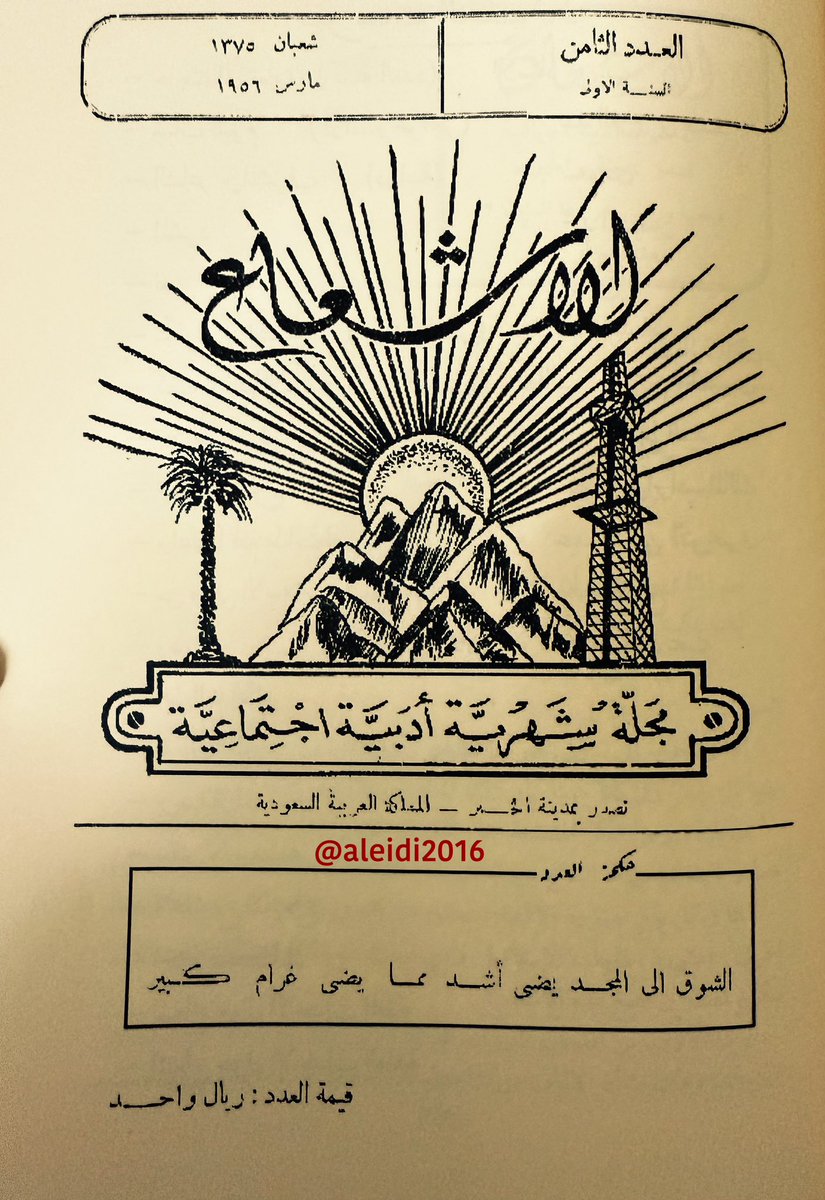 العدد الثامن
السنة الاولى
شعبان ١٣٧٥
مارس ١٩٥٦
الاشعاع
مَجَلّة شَهْرِيَّة أدَبيَّة اجْتِمَاعِيَّة
تصدر بمدينة الخبر - المملكة العربية السعودية
@aleidi2016
حكمة العدد
الشوق الى المجد يضنى أشد مما يضنى غرام كبير
قيمة العدد : ريال واحد